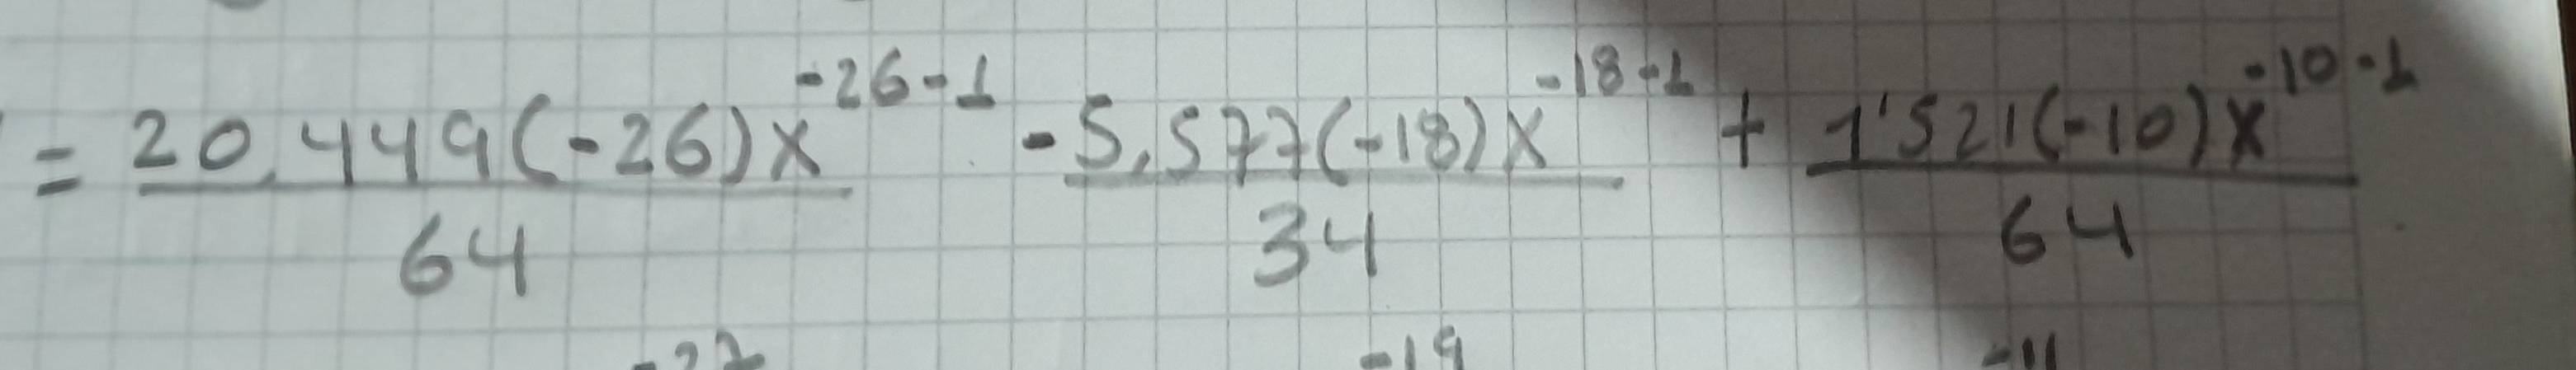 = 20,449(-26)x^-26-1 / 64 - 5,577(-18)x^-18-1 / 34 + 1'521(-10)x^-10-1 / 64
-27 -19 -11